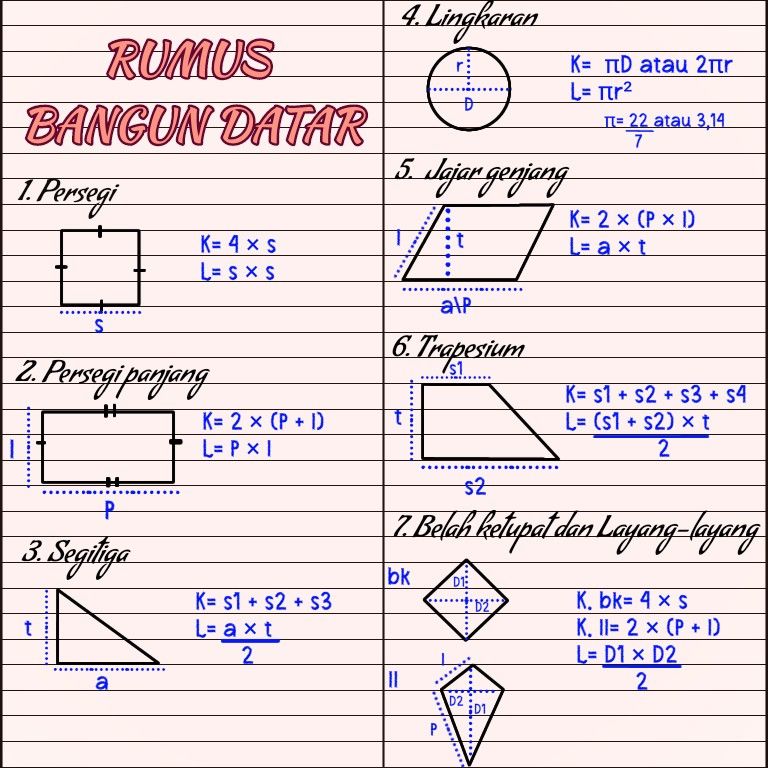 RUMUS
BANGUN DATAR
1. Persegi
K= 4 × s
L= s × s
s
2. Persegi panjang
l
K= 2 × (P + l)
L= P × l
P
3. Segitiga
t
K= s1 + s2 + s3
L= a × t
2
a
4. Lingkaran
r
D
K= πD atau 2πr
L= πr²
π= 22 atau 3,14
7
5. Jajar genjang
l
t
K= 2 × (P × l)
L= a × t
a\P
6. Trapesium
s1
t
K= s1 + s2 + s3 + s4
L= (s1 + s2) × t
2
s2
7. Belah ketupat dan Layang-layang
bk
D1
D2
K. bk= 4 × s
K. ll= 2 × (P + l)
L= D1 × D2
2
ll
l
D2
D1
P